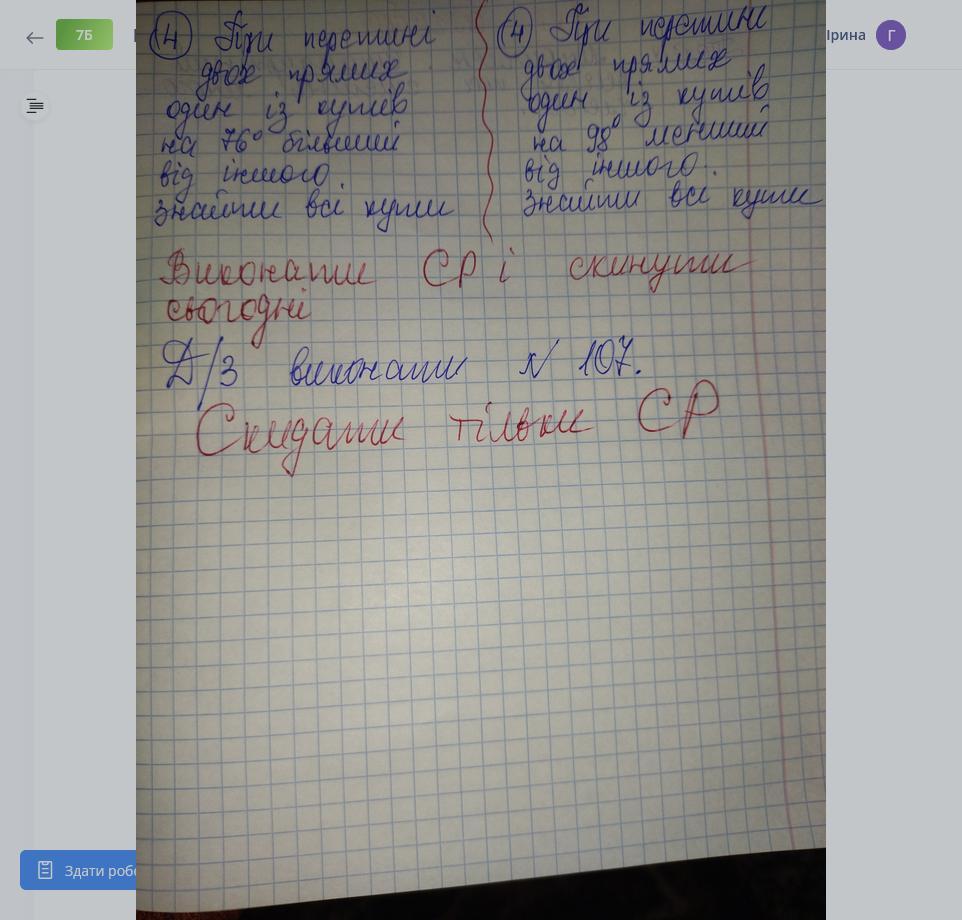 7Б
Ірина
Г
4 При перетині
двох прямих
один із кутів
на 76° більший
від іншого.
Знайти всі кути
4 При перетині
двох прямих
один із кутів
на 98° менший
від іншого.
Знайти всі кути
Виконати СР і скинути
сьогодні
Д/З виконати N 107.
Скидати тільки СР
Здати робо